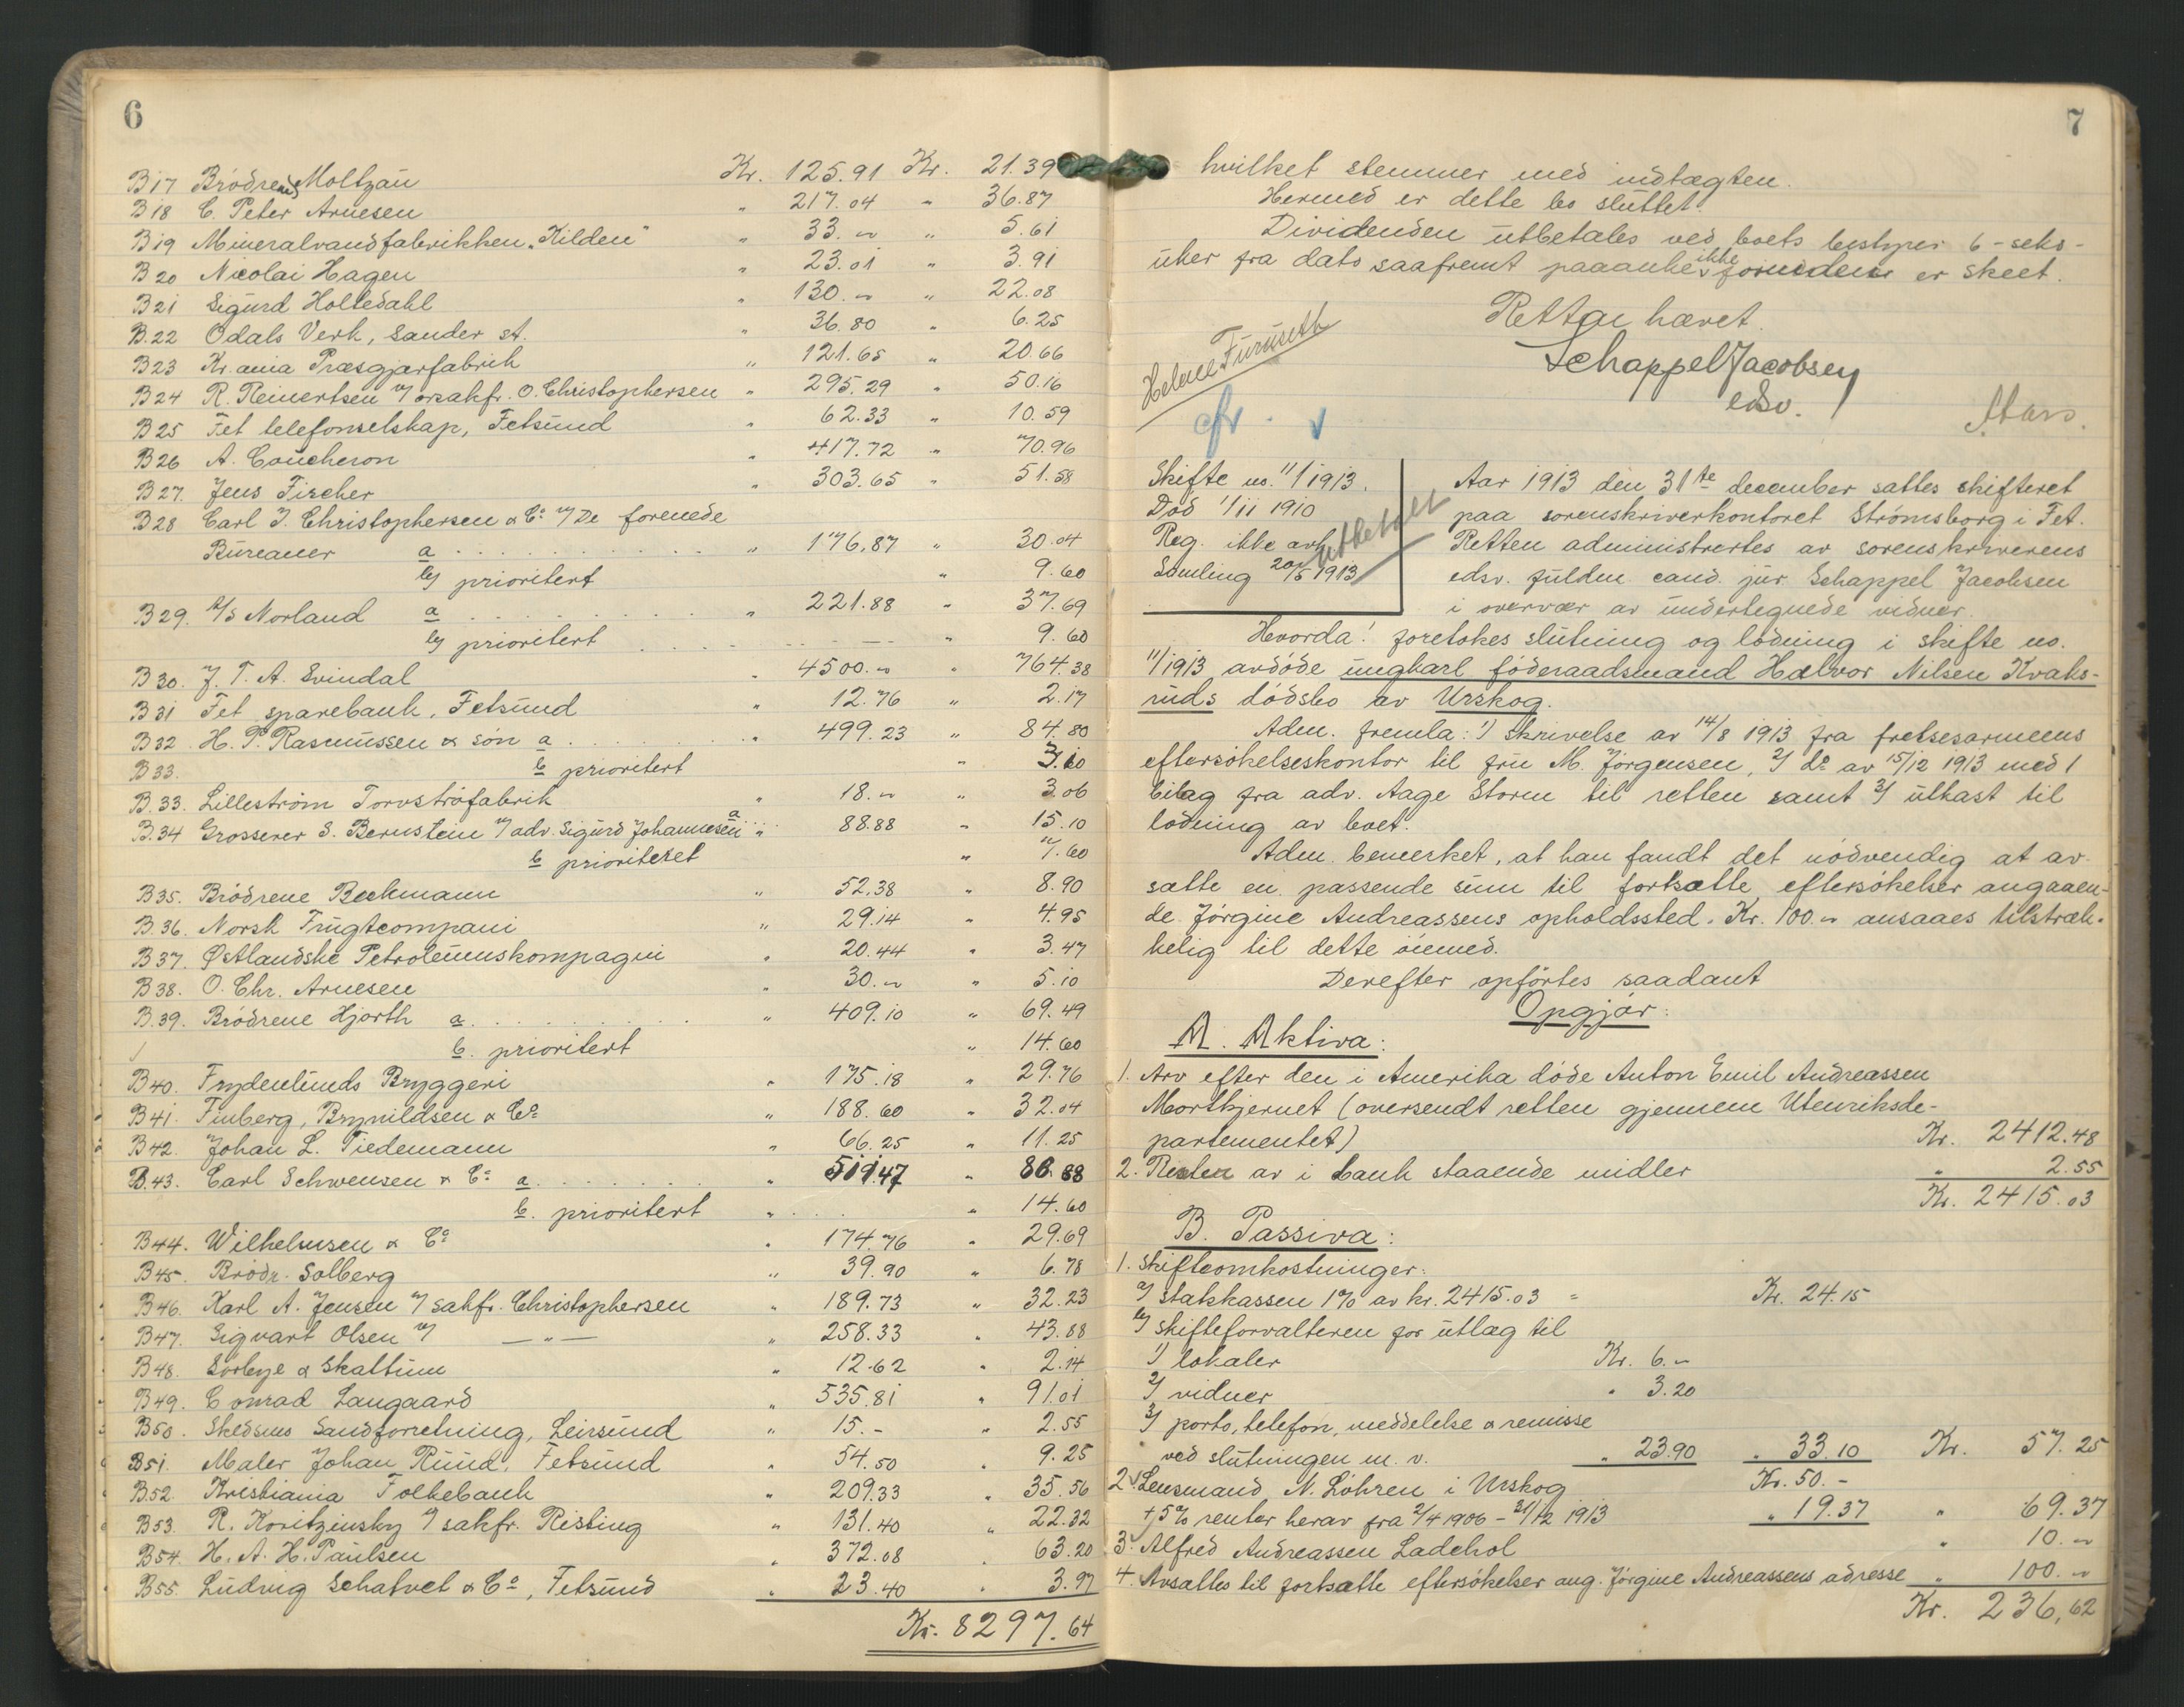 6
B17 Brödrene Moltzau Kr. 125.91 Kr. 21.39
B18 C. Peter Arnesen " 217.04 " 36.87
B19 Mineralvandfabrikken "Kilden" " 33.- " 5.61
B20 Nicolai Hagen " 23.01 " 3.91
B21 Sigurd Holtedahl " 130.- " 22.08
B.22 Odals Verk, Sander st. " 36.80 " 6.25
B23 Kr.ania Præsgjærfabrik " 121.65 " 20.66
B24 R. Reinertsen v/ orsakfr. O. Christophersen " 295.29 " 50.16
B25 Fet telefonselskap, Fetsund " 62.33 " 10.59
B26 A. Coucheron " 417.72 " 70.96
B27. Jens Fischer " 303.65 " 51.58
B28 Carl J. Christophersen & Co v/ De forenede
Bureauer a " 176.87 " 30.04
b/ prioritert " 9.60
B29. A/S Norland a " 221.88 " 37.69
b/ prioritert " 9.60
B30. J. T. A. Svindal " 4500.- " 764.38
B31 Fet sparebank, Fetsund " 12.76 " 2.17
B32. H. P. Rasmussen & søn a " 499.23 " 84.80
B33. b prioritert " 3.10
B.33. Lilleström Torvströfabrik " 18.- " 3.06
B.34 Grosserer S. Bernstein v/ adv. Sigurd Johannesen a " 88.88 " 15.10
b prioriteret " 7.60
B35. Brödrene Beckmann " 52.38 " 8.90
B.36. Norsk Frugtcompani " 29.14 " 4.95
B37. Østlandske Petroleumskompagni " 20.44 " 3.47
B38. O. Chr. Arnesen " 30.- " 5.10
B.39. Brödrene Hjorth a " 409.10 " 69.49
b. prioritert " 14.60
B40. Frydenlunds Bryggeri " 175.18 " 29.76
B41. Finberg, Brynildsen & Co " 188.60 " 32.04
B42. Johan L. Tiedemann " 66.25 " 11.25
B.43. Carl Schwensen & Co a " 511.47 " 86.88
b. prioritert " " 14.60
B44. Wilhelmsen & Co " 174.76 " 29.69
B45. Brödr. Solberg " 39.90 " 6.78
B46. Karl A. Jensen v/ sakfr. Christophersen " 189.73 " 32.23
B47. Sigvart Olsen v/ — " — " 258.33 " 43.88
B48. Sörbye & Skattum " 12.62 " 2.14
B49. Conrad Langaard " 535.81 " 91.01
B50. Skedsmo Landforretning, Leirsund " 15.- " 2.55
B51. Maler Johan Ruud, Fetsund " 54.50 " 9.25
B.52. Kristiania Folkebank " 209.33 " 35.56
B53. R. Koritzinsky v/ sakfr. Risting " 131.40 " 22.32
B54. H. A. H. Paulsen " 372.08 " 63.20
B55. Ludvig Schatvet & Co, Fetsund " 23.40 " 3.97
Kr. 8297.64
7
hvilket stemmer med indtægten.
Hermed er dette bo sluttet.
Dividenden utbetales ved boets bestyrer 6-seks-
uker fra dato saafremt paaanke ikke forinden er skeet.
Retten hævet.
Schappel Jacobsen
edsv.
Helene Furuseth
cfr. v
Skifte no. 11/1913.
Död 1/11 1910
Reg. ikke avh.
Samling 20/5 1913
utbetalt
Aar 1913 den 31te december sattes skifteret
paa sorenskriverkontoret Strömsborg i Fet.
Retten administrertes av sorenskriverens
edsv. fuldm. cand. jur. Schappel Jacobsen
i overvær av undertegnede vidner.
Hvorda! foretokes slutning og lodning i skifte no.
11/1913 avdöde ungkarl föderaadsmand Halvor Nilsen Kvaks-
ruds dödsbo av Urskog.
Adm. fremla: 1) Skrivelse av 14/8 1913 fra frelsesarmeens
eftersökelseskontor til fru M. Jörgensen, 2/ do av 15/12 1913 med 1
bilag fra adv. Aage Storm til retten samt 3/ utkast til
lodning av boet.
Adm. bemerket, at han fandt det nödvendig at av-
sætte en passende sum til fortsatte eftersökelser angaaen-
de Jörgine Andreassens opholdssted. Kr. 100.- ansaaes tilstræk-
kelig til dette öiemed.
Derefter opförtes saadant
Opgjör:
A. Aktiva:
1. Arv efter den i Amerika döde Anton Emil Andreassen
Mortkjernet (oversendt retten gjennem Utenriksde-
partementet) Kr. 2412.48
2. Resten av i bank staaende midler " 2.55
Kr. 2415.03
B. Passiva:
1. Skifteomkostninger:
a/ statskassen 1% av kr. 2415.03 = Kr. 24.15
b/ skifteforvalteren for utlæg til
1) lokaler Kr. 6.-
2/ vidner " 3.20
3/ porto, telefon, meddelelse & remisse
ved slutningen m. v. " 23.90 " 33.10 Kr. 57.25
2. Lensmand N. Löhren i Urskog Kr. 50.-
+ 5% renter herav fra 2/4 1906 - 31/12 1913 " 19.37 " 69.37
3. Alfred Andreassen Ladehol " 10.-
4. Avsattes til fortsatte eftersökelser ang. Jörgine Andreassens adresse " 100.-
Kr. 236,62